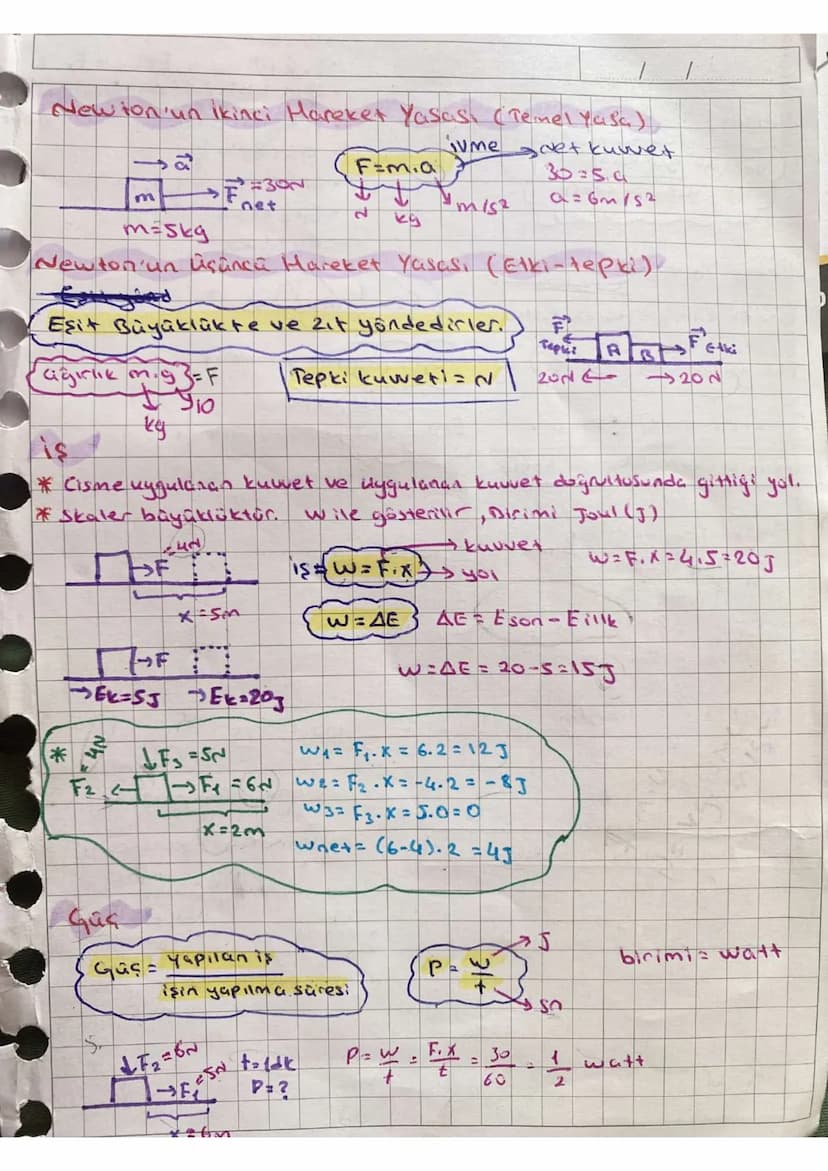 / /
Newton'un ikinci Hareket Yasası (Temel Yasa)
→ a⃗
m → F⃗net = 30N
m=5kg
F=m.a
ivme
→ net kuvvet
N kg m/s²
30=5.a
a=6m/s²
Newton'un Üçüncü Hareket Yasası (Etki-tepki)
Eşit Büyüklükte ve zıt yöndedirler.
F⃗ Tepki A B F⃗ Etki
20N ← → 20N
ağırlık m.g = F
kg 10
Tepki kuvveti = N
iş
* Cisme uygulanan kuvvet ve uygulanan kuvvet doğrultusunda gittiği yol.
* Skaler büyüklüktür. W ile gösterilir, Birimi Joul (J)
→F =4N
x=5m
iş= W=F.x → kuvvet → yol
W=F.x=4.5=20J
W=ΔE ΔE = Eson-Eilk
→F
→Ek=5J →Ek=20J
W=ΔE = 20-5=15J
* 4N ↓F3=5N
F2 ← → F1 =6N
x=2m
W1= F1.x = 6.2=12J
W2= F2.x=-4.2= -8J
W3= F3.x=5.0=0
Wnet= (6-4).2 =4J
Güç
Güç = yapılan iş / işin yapılma süresi
P = W/t → J → sn
birimi = watt
S.
↓F2=6N t=1dk
→F1=5N P=?
x=6m
P= W/t = F.x/t = 30/60 = 1/2 watt